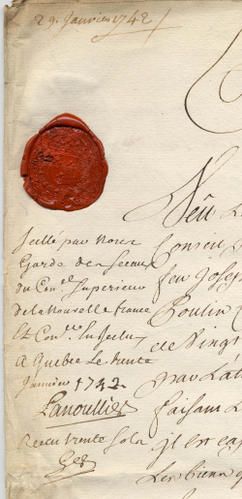 29. Janvier 1742
Veû
Scellé par Nous
Garde des Sceaux
du Con.el Superieur
de la Nouvelle france
Et Con.er
A Quebec Le trente
Janvier 1742
Lanoullier
Receu trente Sols
Conseil
feu Josep
Poulin
de Vingt
par L'a
faisant
jl est
Les biens